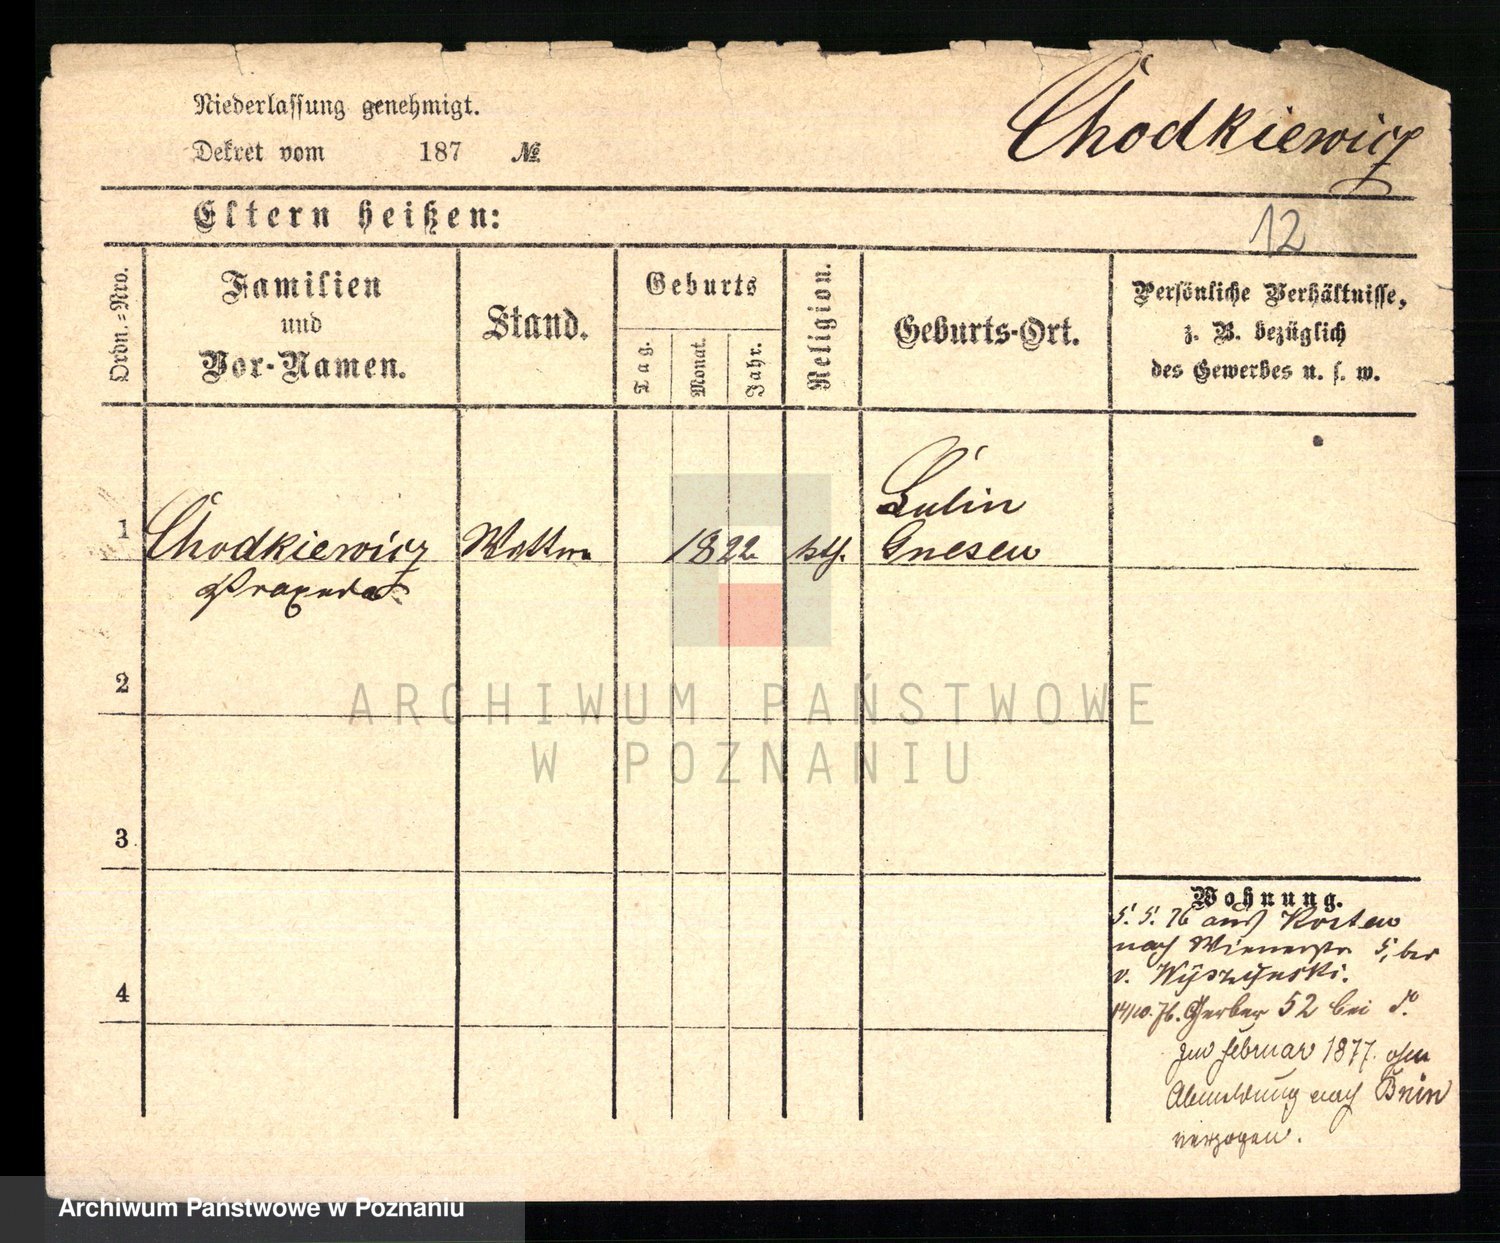 Niederlassung genehmigt.
Dekret vom 187 №
Chodkiewicz
Eltern heißen:
12
Ordn.-Nro.
Familien
und
Vor-Namen.
Stand.
Geburts
Tag.
Monat.
Jahr.
Religion.
Geburts-Ort.
Persönliche Verhältnisse,
z. B. bezüglich
des Gewerbes u. s. w.
1 Chodkiewicz 1822 kth. Lulin
Gnesen
Praxeda
2
3
4
Wohnung.
5. 5. 76 aus Kosten
nach Wienerstr 5, bei
v. Wyszynski.
14/10. 76. Gerber 52 bei do
im Februar 1877. ohne
Abmeldung nach Bnin
verzogen.
ARCHIWUM PAŃSTWOWE
W POZNANIU
Archiwum Państwowe w Poznaniu